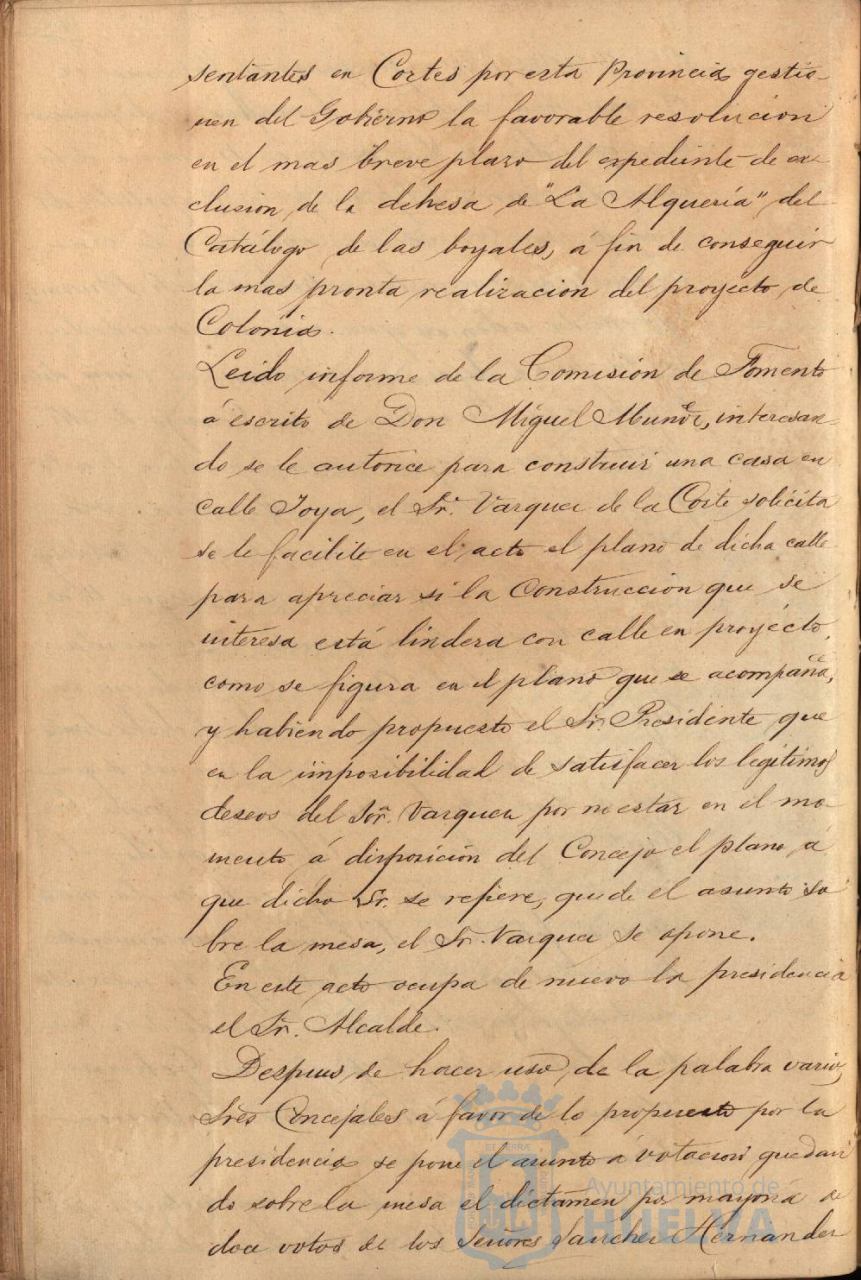 sentantes en Cortes por esta Provincia gestio-
nen del Gobierno la favorable resolucion
en el mas breve plazo del expediente de ex-
clusion de la dehesa de "La Alquería" del
Catálogo de las boyales, á fin de conseguir
la mas pronta realizacion del proyecto de
Colonia.
Leido informe de la Comisión de Fomento
á escrito de Don Miguel Muñoz, interesan-
do se le autorice para construir una casa en
calle Joya, el Sr. Vazquez de la Corte solicita
se le facilite en el acto el plano de dicha calle
para apreciar si la construccion que se
interesa está lindera con calle en proyécto,
como se figura en el plano que se acompaña,
y habiendo propuesto el Sr. Presidente, que
en la imposibilidad de satisfacer los legítimos
deseos del Sor. Vazquez por no estar en el mo-
mento á disposición del Concejo el plano á
que dicho Sr. se refiere, quede el asunto so
bre la mesa, el Sr. Vazquez se opone.
En este acto ocupa de nuevo la presidencia
el Sr. Alcalde.
Despues de hacer uso de la palabra varios
Sres Concejales á favor de lo propuesto por la
presidencia se pone el asunto á votacion quedan
do sobre la mesa el dictamen por mayoria de
doce votos de los Señores Sanchez Hernandez
Ayuntamiento de
HUELVA